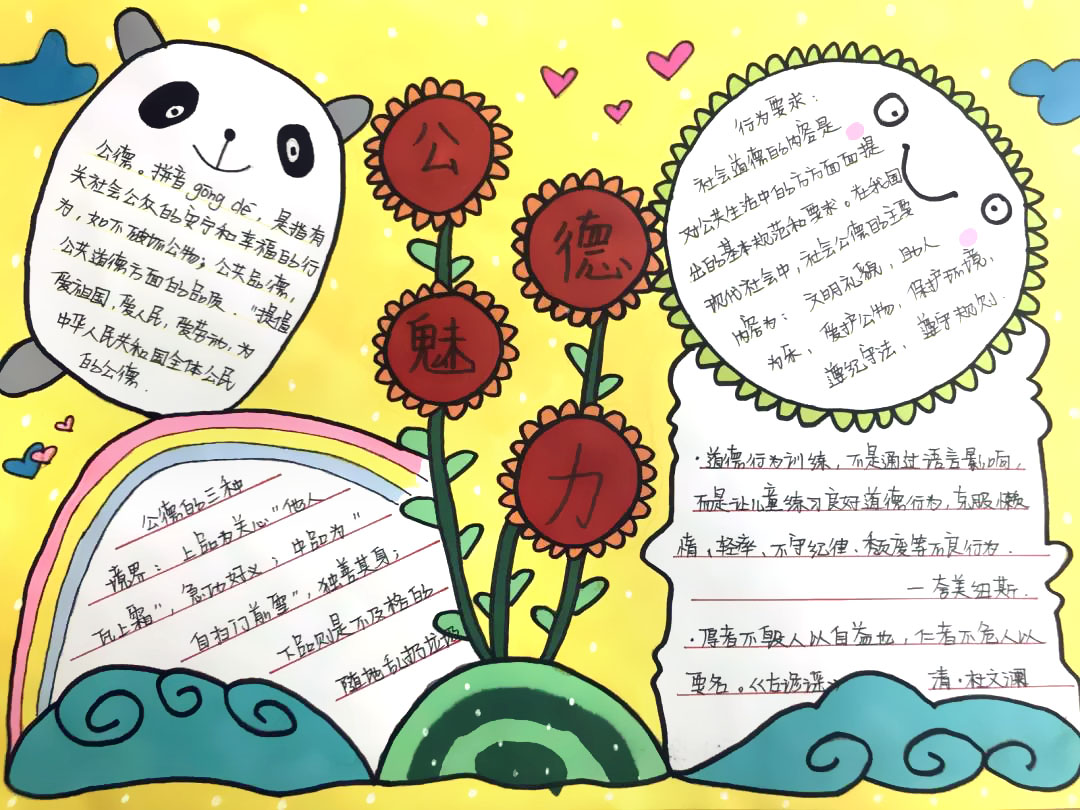 公
德
魅
力
公德。拼音 gōng dé，是指有
关社会公众的安宁和幸福的行
为，如不破坏公物；公共品德，
公共道德方面的品质．“提倡
爱祖国，爱人民，爱劳动，为
中华人民共和国全体公民
的公德．
行为要求：
社会道德的内容是
对公共生活中的方方面面提
出的基本规范和要求。在我国
现代社会中，社会公德的主要
内容为：文明礼貌，助人
为乐，爱护公物，保护环境，
遵纪守法，遵守规次．
公德的三种
境界：上品为关心“他人
瓦上霜”，急功好义；中品为“
自扫门前雪”，独善其身；
下品则是不及格的
随地乱扔垃圾
·道德行为训练，不是通过语言影响，
而是让儿童练习良好道德行为，克服懒
惰、轻率、不守纪律、颓废等不良行为．
一夸美纽斯．
·厚者不毁人以自益也，仁者不危人以
要名。《古谣谚》 清·杜文澜